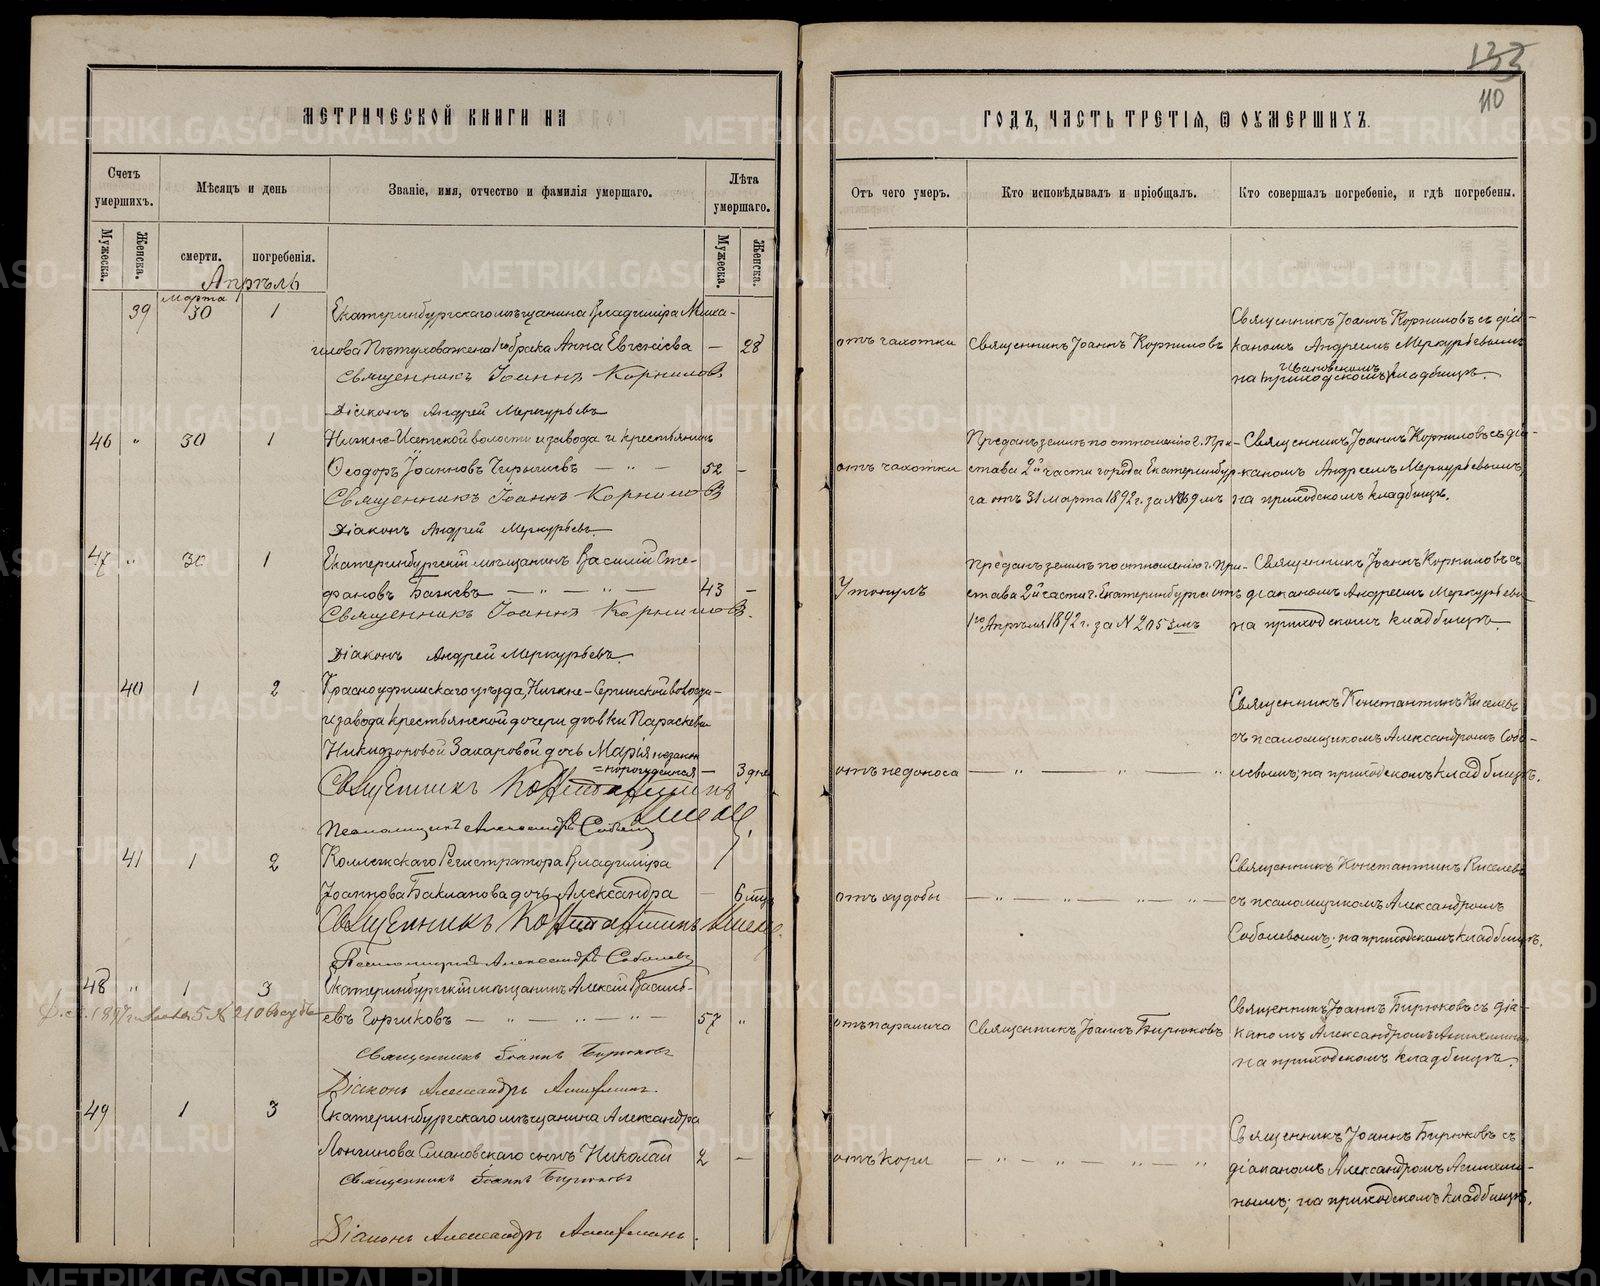 133
110
МЕТРИЧЕСКОЙ КНИГИ НА
ГОДЪ, ЧАСТЬ ТРЕТІЯ, Ѡ ОУМЕРШИХЪ.
Счетъ умершихъ.
Мѣсяцъ и день
Званіе, имя, отчество и фамилія умершаго.
Лѣта умершаго.
Отъ чего умеръ.
Кто исповѣдывалъ и пріобщалъ.
Кто совершалъ погребеніе, и гдѣ погребены.
Мужеска.
Женска.
смерти.
погребенія.
Мужеска.
Женска.
Апрѣль
марта
39 30 1 Екатеринбургскаго мѣщанина Владиміра Миха-
илова Пѣтухова жена 1го брака Анна Евгеніева — 28
Священникъ Іоаннъ Корниловъ
Діаконъ Андрей Меркурьевъ
отъ чахотки
Священникъ Іоаннъ Корниловъ
Священникъ Іоаннъ Корниловъ съ діа-
кономъ Андреемъ Меркурьевымъ
Ивановскомъ
на приходскомъ кладбищѣ.
46 " 30 1 Нижне-Исетской волости и завода и крестьянинъ
Ѳеодоръ Іоанновъ — " — 52 —
Священникъ Іоаннъ Корниловъ
Діаконъ Андрей Меркурьевъ
отъ чахотки
Преданъ землѣ по отношенію г. При-
става 2й части города Екатеринбур-
га отъ 31 марта 1892 г. за №
Священникъ Іоаннъ Корниловъ съ діа-
кономъ Андреемъ Меркурьевымъ
на приходскомъ кладбищѣ.
47 " 30 1 Екатеринбургскій мѣщанинъ Василій Сте-
фановъ Бажевъ — " — " — 43 —
Священникъ Іоаннъ Корниловъ.
Діаконъ Андрей Меркурьевъ.
Утонулъ
Преданъ землѣ по отношенію г. При-
става 2й части г. Екатеринбурга отъ
1го Апрѣля 1892 г. за №
Священникъ Іоаннъ Корниловъ съ
діакономъ Андреемъ Меркурьевы
на приходскомъ кладбищѣ.
40 1 2 Красноуфимскаго уѣзда, Нижне-Сергинской волости
и завода крестьянской дочери дѣвки Параскевы
Никидзоновой Захаровой дочь Марія незакон
=норожденная — 3 дня
Священникъ Константинъ
Киселевъ
Псаломщикъ Александръ Соболевъ
отъ недоноса
— " — " — "
Священникъ Константинъ Киселевъ
съ псаломщикомъ Александромъ Собо-
левымъ; на приходскомъ кладбищѣ.
41 1 2 Коллежскаго Регистратора Владиміра
Іоаннова Бакланова дочь Александра — 6 мѣц
Священникъ Константинъ Киселев.
Псаломщикъ Александръ Соболевъ
отъ худобы
— " — " — " — "
Священникъ Константинъ Киселевъ
съ псаломщикомъ Александромъ
Соболевымъ; на приходскомъ кладбищѣ.
48 " 1 3 Екатеринбургскій мѣщанинъ Алексій Василь-
евъ Горшковъ — " — " — " — 57 "
Священникъ Іоаннъ Бирюковъ
Діаконъ Александръ
отъ паралича
Священникъ Іоаннъ Бирюковъ
Священникъ Іоаннъ Бирюковъ съ діа-
кономъ Александромъ
на приходскомъ кладбищѣ.
49 1 3 Екатеринбургскаго мѣщанина Александра
Лонгинова Смановскаго сынъ Николай 2 —
Священникъ Іоаннъ Бирюковъ
Діаконъ Александръ
отъ кори
— " — " — " — "
Священникъ Іоаннъ Бирюковъ съ
діакономъ Александромъ
нымъ; на приходскомъ кладбищѣ.
METRIKI.GASO-URAL.RU